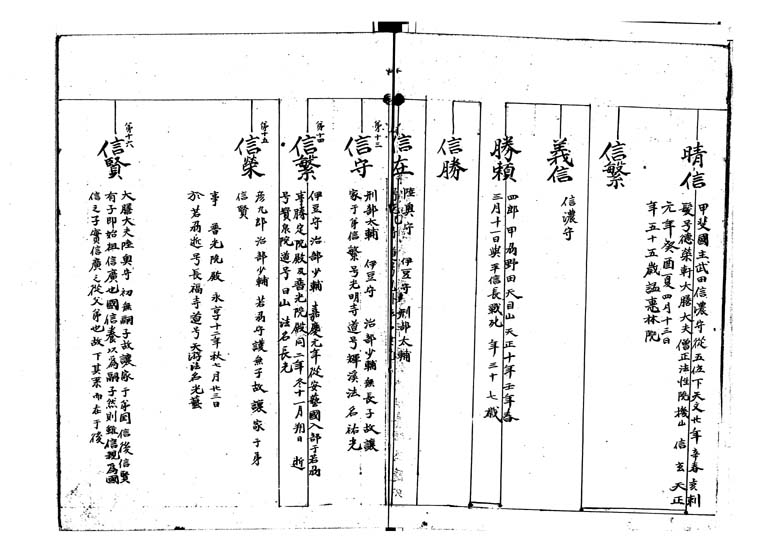 晴信
甲斐國主武田信濃守從五位下天文廿年辛亥春剃
髪号徳榮軒大膳大夫僧正法性院機山信玄天正
元年癸酉夏四月十三日
年五十五歳諡惠林院
信繁
義信
信濃守
勝頼
四郎甲刕野田天目山天正十年壬午春
三月十一日與平信長戦死年三十七歳
信勝
信在
陸奥守 伊豆守 刑部太輔
第十三
信守
刑部太輔 伊豆守 治部少輔無長子故讓
家于弟信繁号光明寺道号輝溪法名祐光
第十四
信繁
伊豆守 治部少輔 嘉慶元年從安藝國入部于若刕
奉勝定院殿及普光院殿同二年冬十一月朔日 逝
号寳泉院道号日山 法名長光
第十五
信榮
彦九郎 治部少輔 若刕守護無子故讓家于弟
信賢
事 普光院殿 永享十二年秋七月廿三日
於若刕逝号長福寺道号天游法名光藝
第十六
信賢
大膳大夫陸奥守初無嗣子故讓家于弟國信後信賢
有子即始祖信廣也國信養以為嗣子然則雖信親為國
信之子實信廣之從父弟也故下其系而在于後